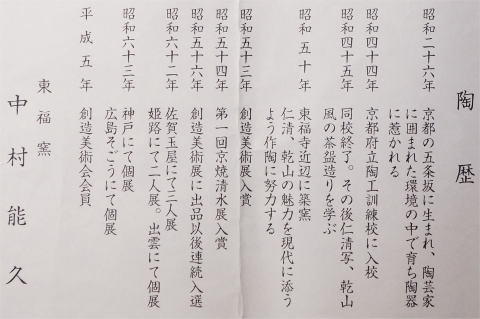 陶歴
昭和二十六年 京都の五条坂に生まれ、陶芸家
に囲まれた環境の中で育ち陶器
に惹かれる
昭和四十四年 京都府立陶工訓練校に入校
昭和四十五年 同校終了。その後仁清写、乾山
風の茶盌造りを学ぶ
昭和五十年 東福寺近辺に築窯
仁清、乾山の魅力を現代に添う
よう作陶に努力する
昭和五十三年 創造美術展入賞
昭和五十四年 第一回京焼清水展入賞
昭和五十六年 創造美術展に出品以後連続入選
昭和六十二年 佐賀玉屋にて二人展
姫路にて二人展。出雲にて個展
昭和六十三年 神戸にて個展
広島そごうにて個展
平成五年 創造美術会会員
東福窯
中村能久